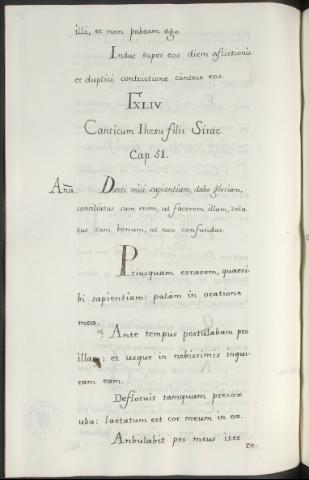 illi, et non pabeam ego.
Induc super eos diem aflictionis
et duplici contrictione contere eos.
LXLIV
Canticum Ihesu filii Sirac
Cap. 51.
Aña. Danti mici sapientiam, dabo gloriam,
conciliatus sum enim, ut facerem illam, zela
tus sum bonum, ut non confundar.
Priusquam errarem, quaesi-
bi sapientiam: palám in oratione
mea.
Ante tempus postulabam pro
illam: et usque in nobissimis inqui-
ram eam.
Defloruit tamquam precox
uba: laetatum est cor meum in ea.
Anbulabit pes meus iter
re-